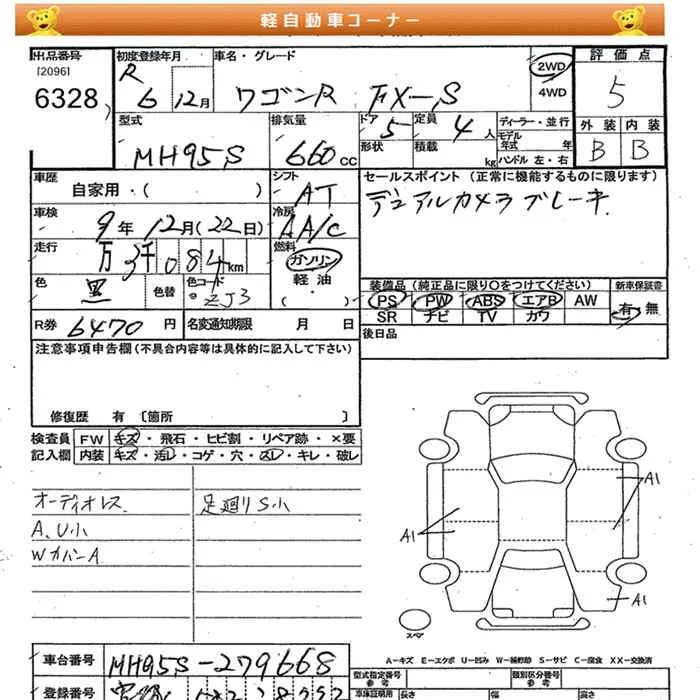 軽自動車コーナー
出品番号 初度登録年月 車名・グレード 評価点
[2096]
6328 R 6 12月 ワゴンR FX-S 2WD 4WD 5
型式 排気量 ドア 5 定員 4人 ディーラー・並行 外装 内装
形状 積載 kg モデル年式 年 ハンドル 左・右
MH95S 660cc B B
車歴 シフト セールスポイント (正常に機能するものに限ります)
自家用・( ) AT デュアルカメラブレーキ
車検 9年 12月(22日) 冷房 AA/C
走行 万3千084km 燃料 ガソリン
軽油
( )
色 黒 色替 色コード ZJ3
装備品 (純正品に限り○をつけてください) 新車保証書
PS PW ABS エアB AW 有・無
SR ナビ TV カワ
R券 6470円 名変通知期限 月 日 後日品
注意事項申告欄(不具合内容等は具体的に記入して下さい)
修復歴 有 〔箇所 〕
検査員 FW キズ・飛石・ヒビ割・リペア跡・×要
記入欄 内装 キズ・汚レ・コゲ・穴・スレ・キレ・破レ
オーディオレス 足廻りS小
A,U小
WカバーA
A1
A1
A1
スペア
A-キズ E-エクボ U-凹み W-補修跡 S-サビ C-腐食 XX-交換済
車台番号 MH95S-279668
型式指定番号 類別区分番号
参考 参考
登録番号
車庫証明用 長さ 幅 高さ